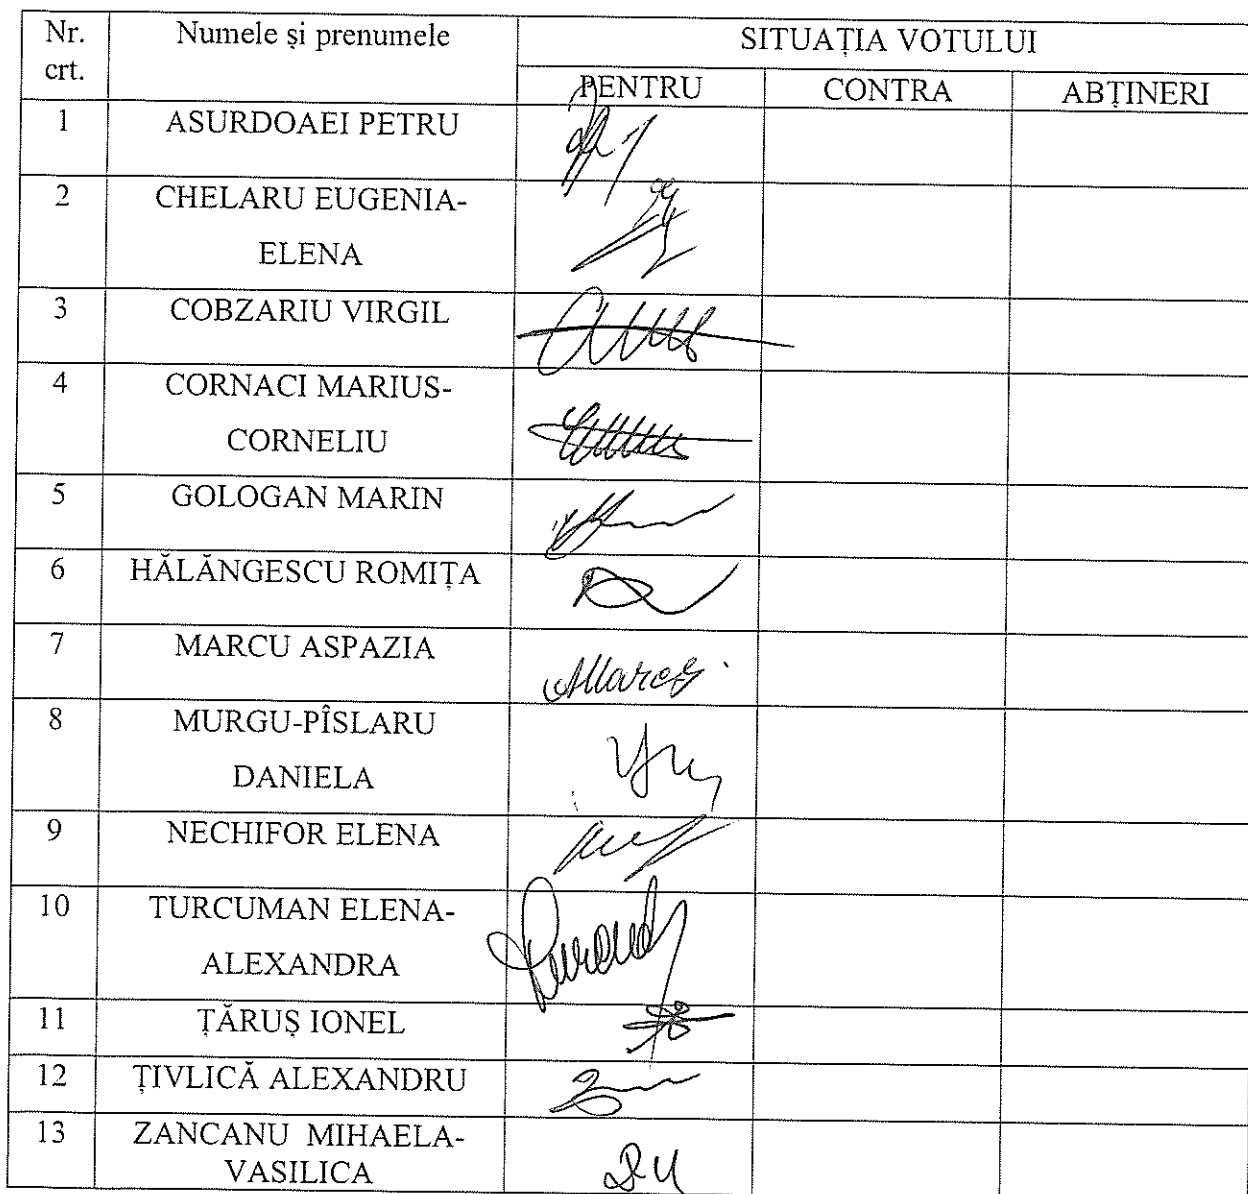 Nr. Numele și prenumele SITUAȚIA VOTULUI
crt.
PENTRU CONTRA ABȚINERI
1 ASURDOAEI PETRU
2 CHELARU EUGENIA-
ELENA
3 COBZARIU VIRGIL
4 CORNACI MARIUS-
CORNELIU
5 GOLOGAN MARIN
6 HĂLĂNGESCU ROMIȚA
7 MARCU ASPAZIA
8 MURGU-PÎSLARU
DANIELA
9 NECHIFOR ELENA
10 TURCUMAN ELENA-
ALEXANDRA
11 ȚĂRUȘ IONEL
12 ȚIVLICĂ ALEXANDRU
13 ZANCANU MIHAELA-
VASILICA